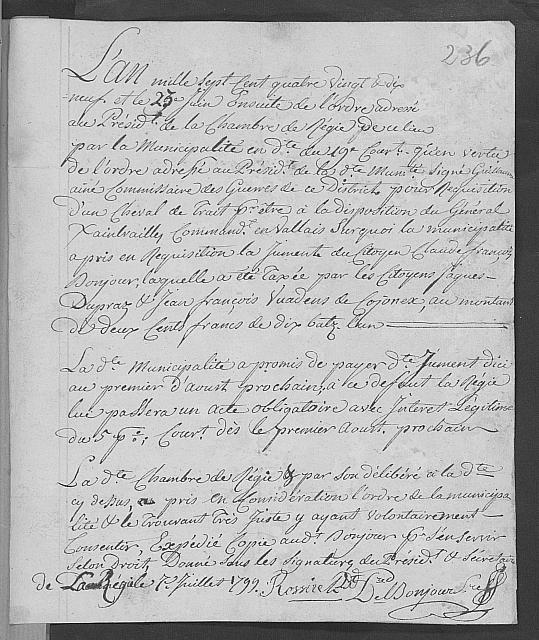 236
L'an mille sept Cent quatre vingt & dix
neuf et le 23e Juin ensuite de l'ordre adressé
au Présidt de la Chambre de Régie de ce lieu
par la Municipalité en dte du 19e Court qu'en vertu
de l'ordre adressé au Présidt de la dte Munité signé
ainé Commissaire des Guerres de ce District pour Requisition
d'un Cheval de Trait pr être à la disposition du Général
Xaintrailles Commandt en Vallais surquoi la municipalité
a pris en Réquisition la Jumente du Citoyen Claude françois
Bonjour, laquelle a été Taxée par les Citoyens Jâques
Dupraz & Jean françois Vuadens de Cojonex, au montant
de deux Cents francs de dix batz l'un
La dte Municipalité a promis de payer dte Jument d'ici
au premier d'Aoust prochain, à ce defaut la Régie
lui passera un acte obligatoire avec Interet Légitime
du 5 p% Court dès le premier Aoust prochain
La dte Chambre de Régie & par son délibéré à la dte
cy dessus, a pris en Considération l'ordre de la municipa
lité & le Trouvant Très Juste y ayant volontairement
Consentir, Expédié Copie audt Bonjour pr s'en servir
selon droit Donné sous les signatures du Présidt & Secrétaire
de La Régie le Juillet 1799. Bonjour